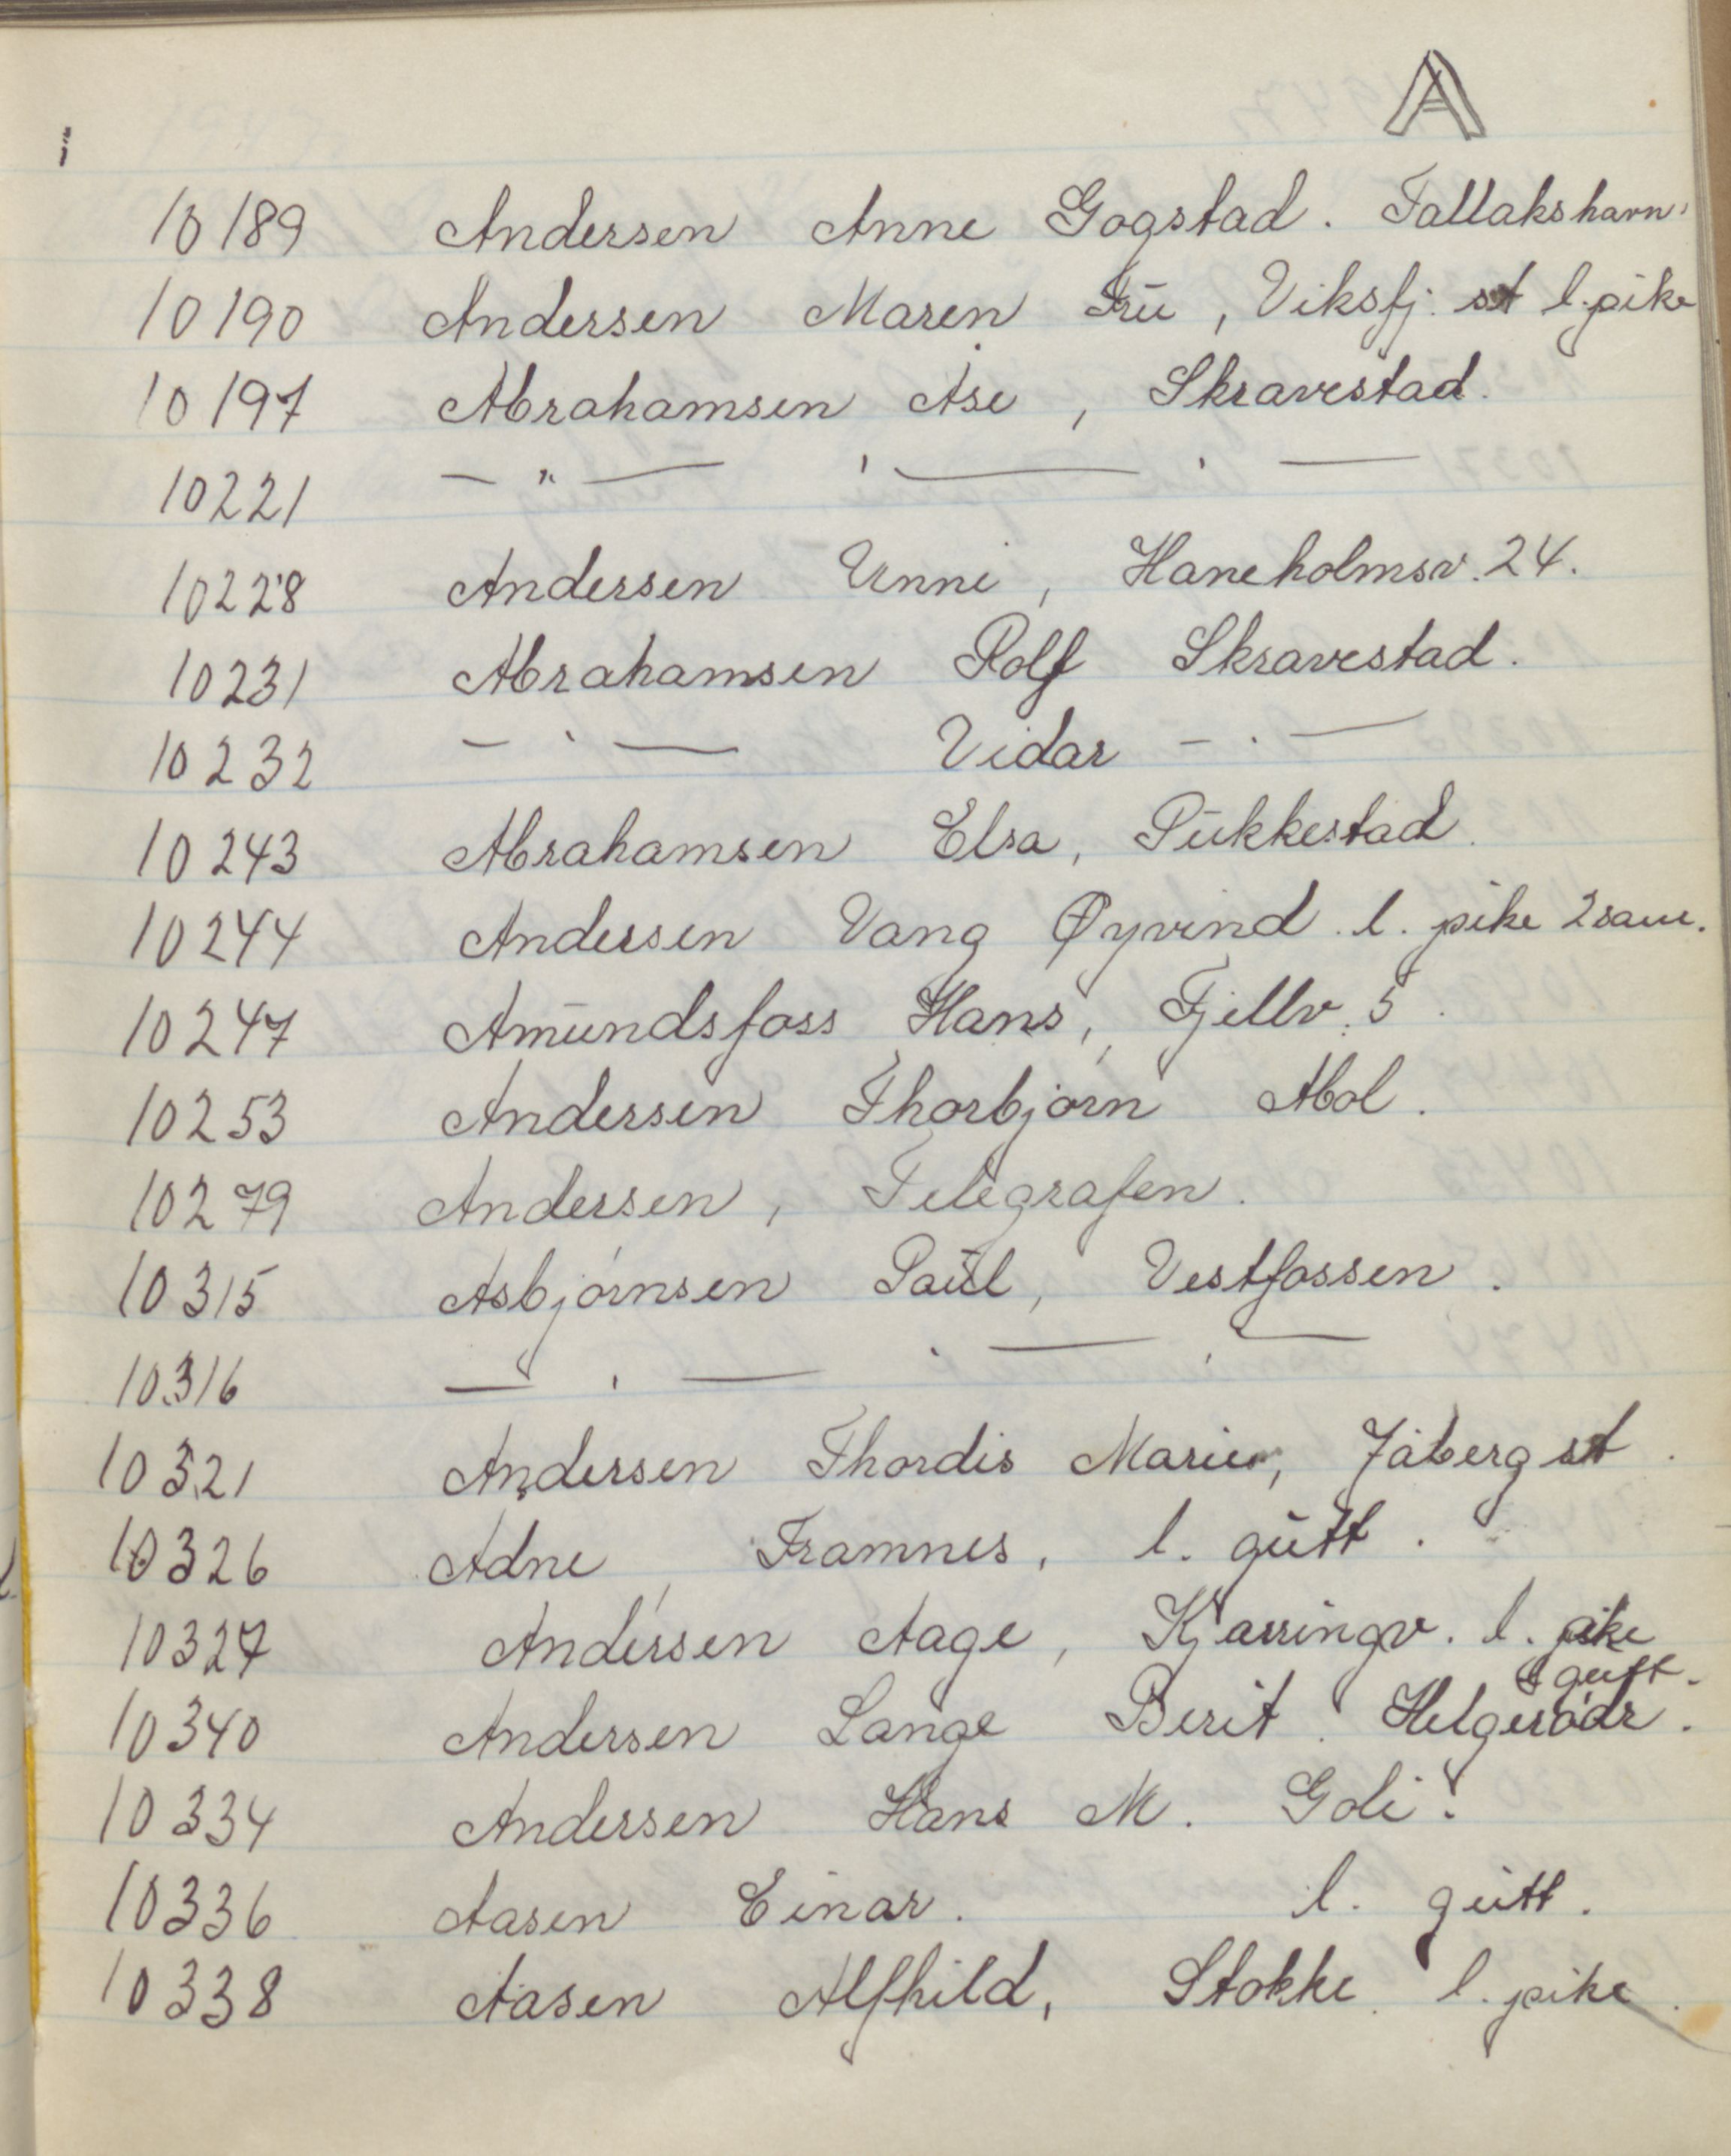 A
10189 Andersen Anne Gogstad. Tallakshavn.
10190 Andersen Maren Fru, Viksfj. st l. pike
10197 Abrahamsen Åse, Skravestad.
10221 — " — ' — ' —
10228 Andersen Unni, Haneholmsv. 24.
10231 Abrahamsen Rolf Skravestad.
10232 — ' — Vidar — " —
10243 Abrahamsen Elsa, Pukkestad.
10244 Andersen Vang Øyvind. l. pike 2 sam.
10247 Amundsfoss Hans, Fjellv. 5.
10253 Andersen Thorbjørn Abol.
10279 Andersen, Telegrafen.
10315 Asbjørnsen Paul, Vestfossen.
10316 — ' — ' — ' —
10321 Andersen Thordis Marie, Jåberg st.
10326 Adne, Framnes, l. gutt.
10327 Andersen Aage, Kjærringv. l. pike
gutt.
10340 Andersen Lange Berit. Helgerødr.
10334 Andersen Hans M. Goli.
10336 Aasen Einar. l. gutt.
10338 Aasen Alfhild, Stokke. l. pike.